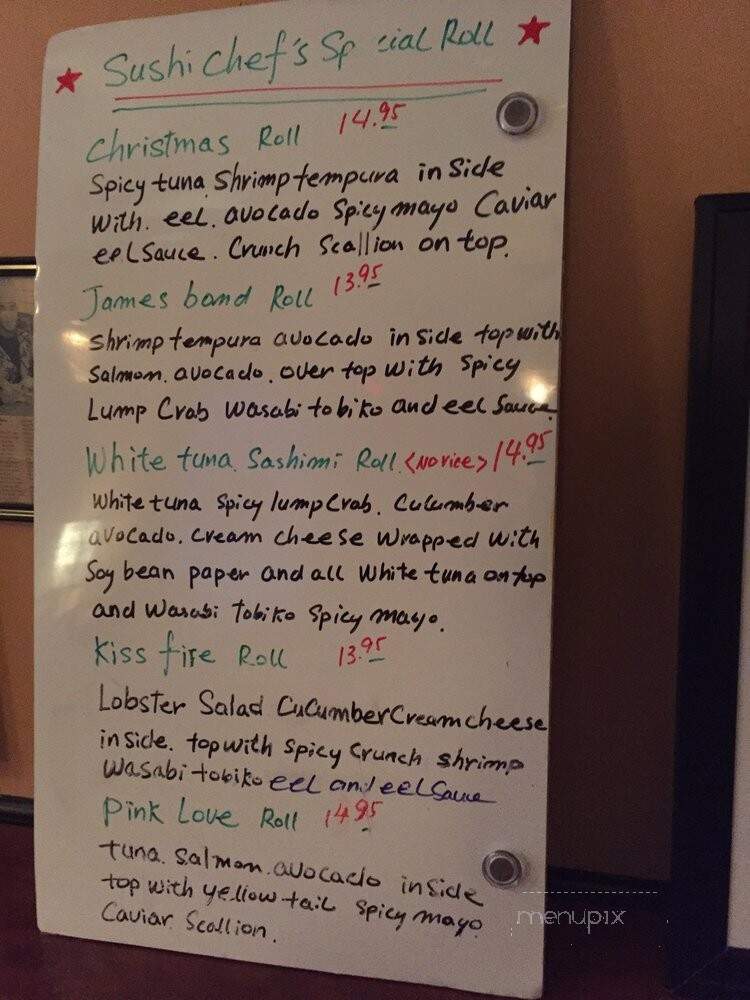 Sushi Chef's Sp cial Roll
Christmas Roll 14.95
Spicy tuna. Shrimp tempura inside
with. eel. avocado Spicy mayo Caviar
eel Sauce. Crunch Scallion on top.
James band Roll 13.95
Shrimp tempura avocado inside top with
Salmon. avocado. over top with Spicy
Lump Crab Wasabi tobiko and eel Sauce.
White tuna. Sashimi Roll <No rice> 14.95
White tuna Spicy lump Crab. Cucumber
avocado. cream cheese wrapped with
Soy bean paper and all White tuna on top
and Wasabi Tobiko Spicy mayo.
Kiss fire Roll 13.95
Lobster Salad CuCumber Cream cheese
inside. top with Spicy Crunch shrimp
Wasabi tobiko eel and eel Sauce
Pink Love Roll 14.95
tuna. Salmon. avocado inside
top with yellow tail Spicy mayo
Caviar Scallion.
menupix